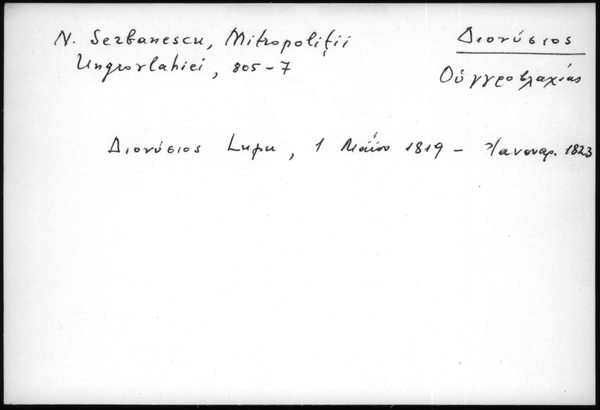 N. Serbanescu, Mitropoliții
Ungrovlahiei, 805-7
Διονύσιος
Οὑγγροβλαχίας
Διονύσιος Lupu, 1 Μαΐου 1819 - Ἰανουαρ. 1823